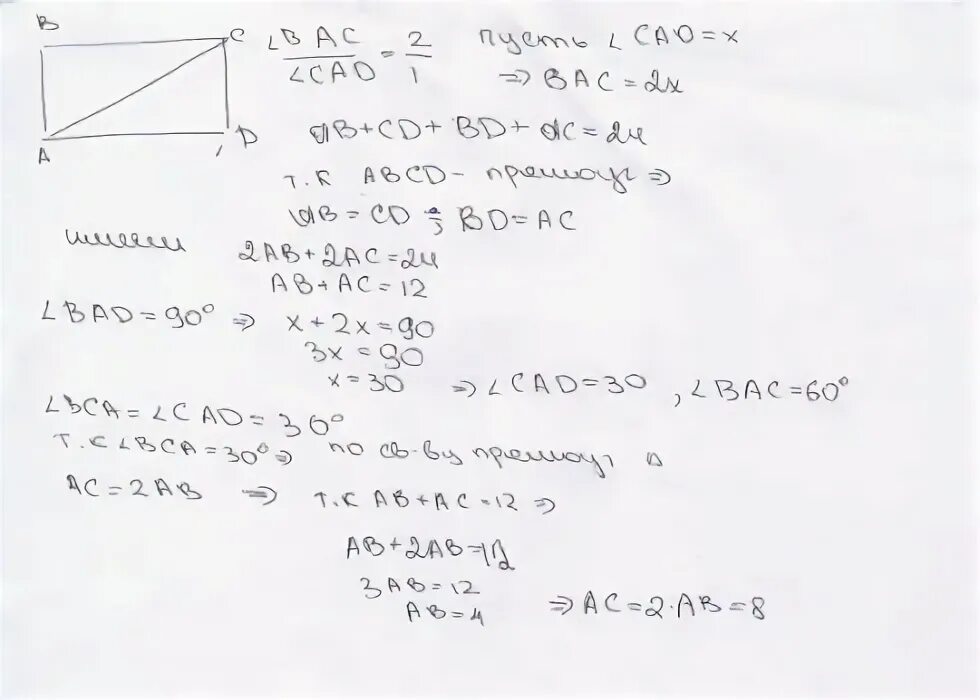 B
C
A
D
∠BAC / ∠CAD = 2/1
пусть ∠CAD = x
⇒ BAC = 2x
AB + CD + BD + AC = 24
т.к ABCD - прямоуг ⇒
AB = CD ; BD = AC
имеем
2AB + 2AC = 24
AB + AC = 12
∠BAD = 90° ⇒ x + 2x = 90
3x = 90
x = 30 ⇒ ∠CAD = 30 , ∠BAC = 60°
∠BCA = ∠CAD = 30°
т.к ∠BCA = 30° ⇒ по св-ву прямоуг Δ
AC = 2AB ⇒ т.к AB + AC = 12 ⇒
AB + 2AB = 12
3AB = 12
AB = 4 ⇒ AC = 2·AB = 8